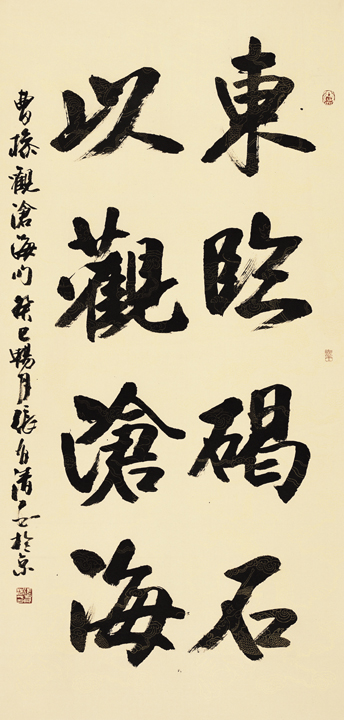 東臨碣石
以觀滄海
曹操觀滄海句癸巳暢月張有清書於京